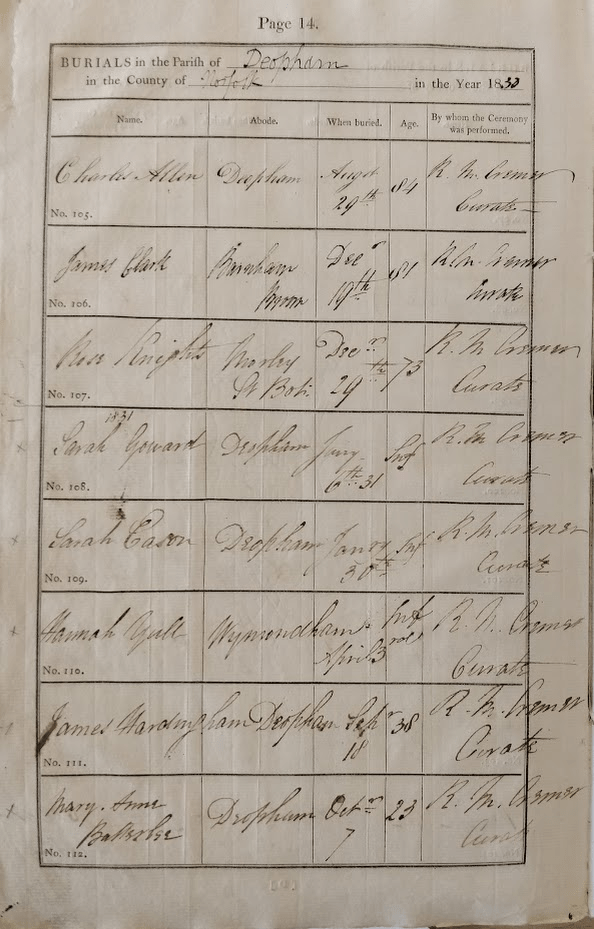 Page 14.
BURIALS in the Parish of Deopham
in the County of Norfolk in the Year 1830
Name. Abode. When buried. Age. By whom the Ceremony was performed.
Charles Allen Deopham Augst 29th 84 R. M. Cremer Curate
No. 105.
James Clark Barnham Broom Decr 19th 81 R. M. Cremer Curate
No. 106.
Rose Knights Morley St Bot: Decr 29th 73 R. M. Cremer Curate
No. 107.
1831
Sarah Goward Deopham Jany 6th 31 Inf R. M. Cremer Curate
No. 108.
Sarah Eason Deopham Janry 30th Inf R. M. Cremer Curate
No. 109.
Hannah Gull Wymondham April 3 Inf R. M. Cremer Curate
No. 110.
James Hardingham Deopham Sepr 18 38 R. M. Cremer Curate
No. 111.
Mary Anne Deopham Octr 7 23 R. M. Cremer Curate
No. 112.